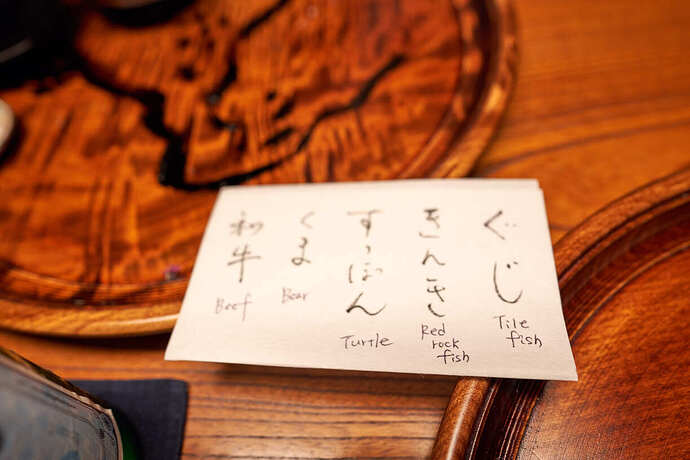 ぐじ
Tile
fish
きんき
Red
rock
fish
すっぽん
Turtle
くま
Bear
和牛
Beef